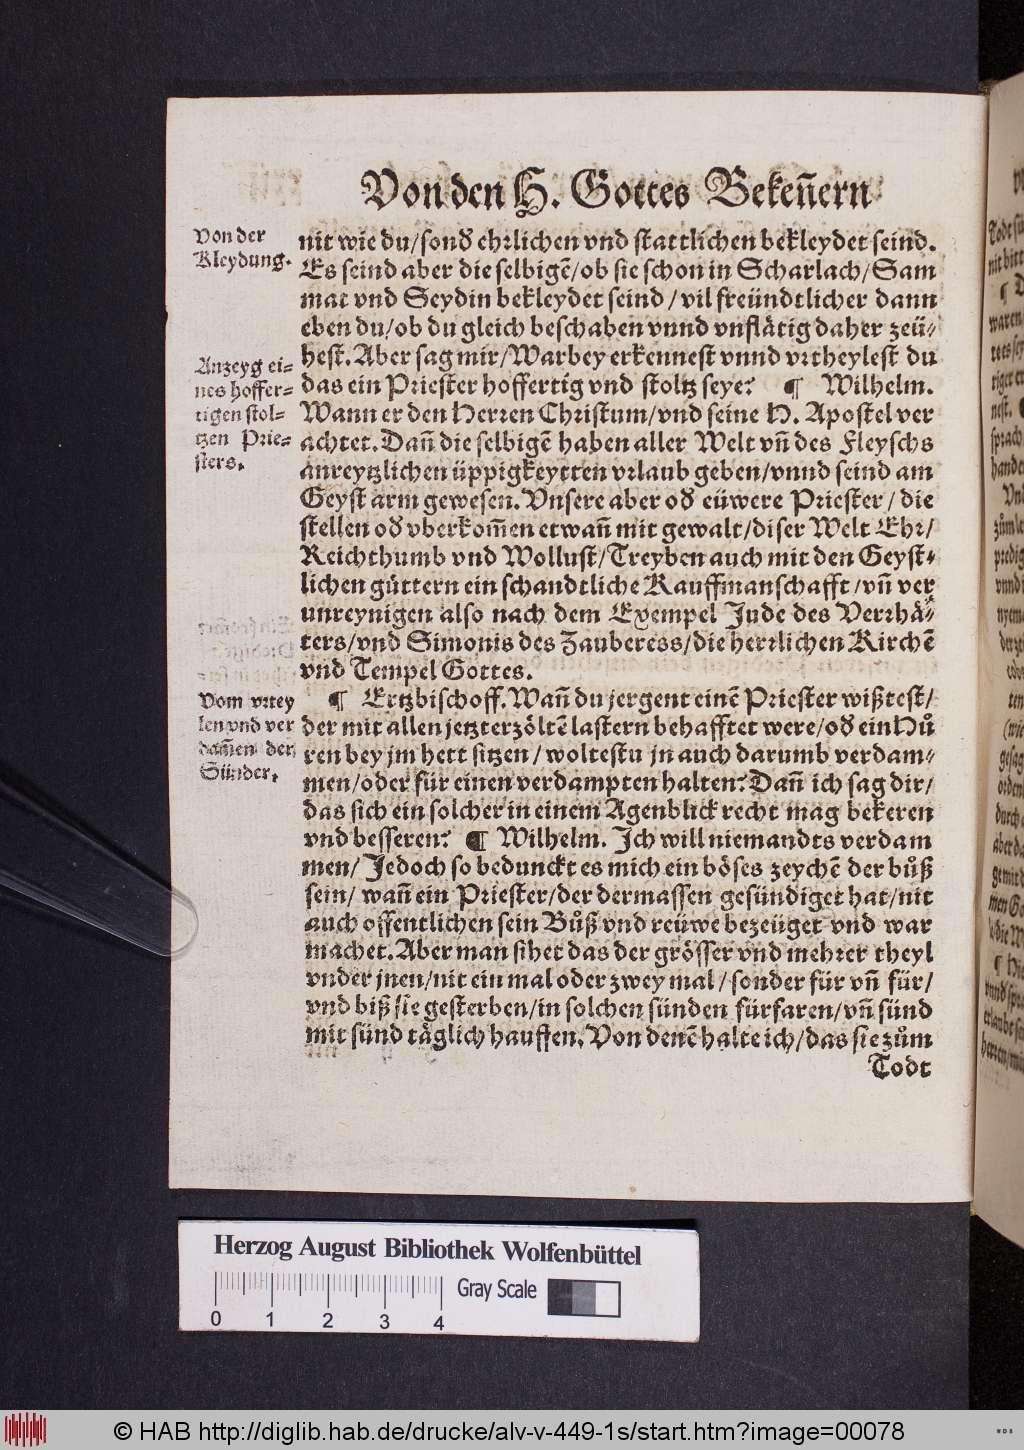 Von den H. Gottes Bekeñern
Von der
Kleydung.
nit wie du/sond ehrlichen vnd stattlichen bekleydet seind.
Es seind aber die selbigẽ/ob sie schon in Scharlach/Sam
mat vnd Seydin bekleydet seind/vil freündtlicher dann
eben du/ob du gleich beschaben vnnd vnflätig daher zeü-
hest. Aber sag mir/Warbey erkennest vnnd vrtheylest du
das ein Priester hoffertig vnd stoltz seye? ¶ Wilhelm.
Anzeyg ei-
nes hoffer-
tigen stol-
tzen Prie-
sters.
Wann er den Herren Christum/vnd seine H. Apostel ver
achtet. Dañ die selbigẽ haben aller Welt vñ des Fleyschs
anreytzlichen üppigkeytten vrlaub geben/vnnd seind am
Geyst arm gewesen. Vnsere aber od eüwere Priester/die
stellen od vberkom̃en etwañ mit gewalt/diser Welt Ehr/
Reichthumb vnd Wollust/Treyben auch mit den Geyst-
lichen güttern ein schandtliche Kauffmanschafft/vñ ver
unreynigen also nach dem Exempel Jude des Verrhä-
ters/vnd Simonis des Zauberess/die herrlichen Kirchẽ
vnd Tempel Gottes.
Vom vrtey
len vnd ver
dam̃en der
Sünder.
¶ Ertzbischoff. Wañ du jergent einẽ Priester wißtest/
der mit allen jetzterzöltẽ lastern behafftet were/od ein Hů
ren bey jm hett sitzen/woltestu jn auch darumb verdam-
men/oder für einen verdampten halten? Dañ ich sag dir/
das sich ein solcher in einem Agenblick recht mag bekeren
vnd besseren? ¶ Wilhelm. Ich will niemandts verdam
men/Jedoch so bedunckt es mich ein böses zeychẽ der bůß
sein/wañ ein Priester/der dermassen gesündiget hat/nit
auch offentlichen sein Bůß vnd reüwe bezeüget vnd war
machet. Aber man sihet das der grösser vnd mehrer theyl
vnder jnen/nit ein mal oder zwey mal/sonder für vñ für/
vnd biß sie gesterben/in solchen sünden fürfaren/vñ sünd
mit sünd täglich hauffen. Von denẽ halte ich/das sie zům
Todt
Herzog August Bibliothek Wolfenbüttel
Gray Scale
0 1 2 3 4
© HAB http://diglib.hab.de/drucke/alv-v-449-1s/start.htm?image=00078